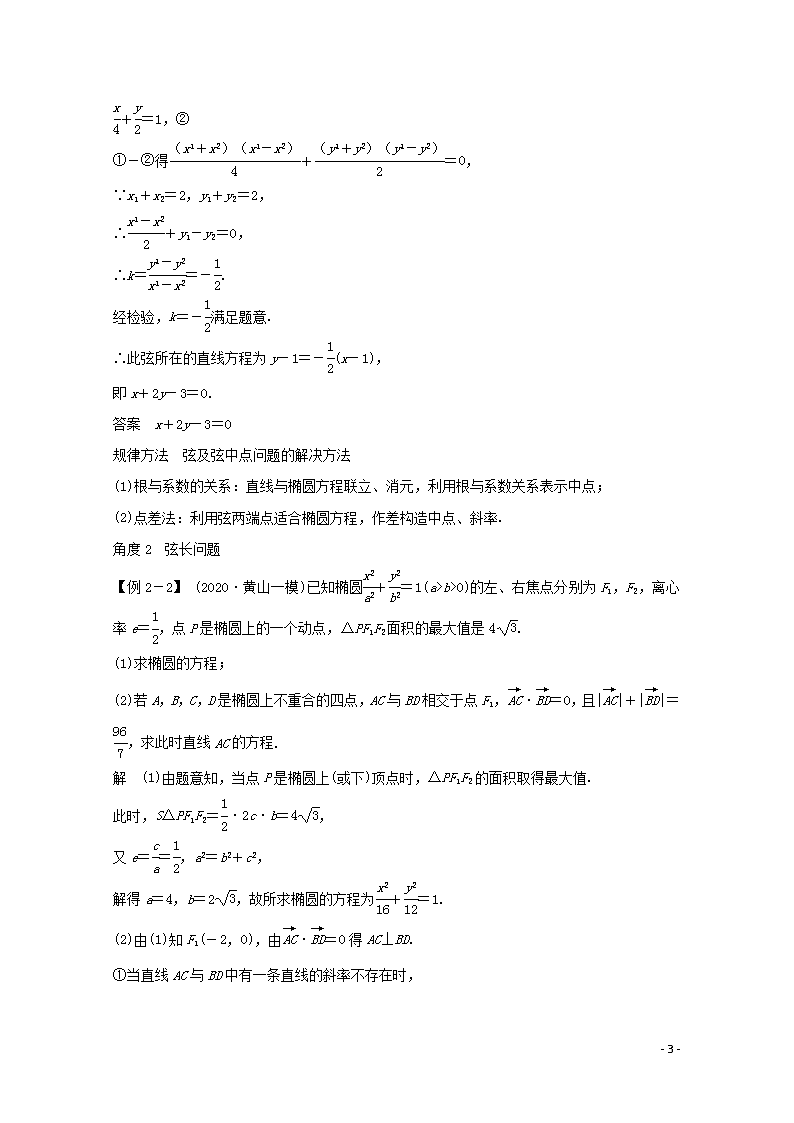 x/4+y/2=1,②
①-②得(x1+x2)(x1-x2)/4+(y1+y2)(y1-y2)/2=0,
∵x₁+x₂=2,y₁+y₂=2,
∴x1-x2/2+y₁-y₂=0,
∴k=y1-y2/x1-x2=-1/2.
经检验,k=-1/2满足题意.
∴此弦所在的直线方程为y-1=-1/2(x-1),
即x+2y-3=0.
答案 x+2y-3=0
规律方法 弦及弦中点问题的解决方法
(1)根与系数的关系:直线与椭圆方程联立、消元,利用根与系数关系表示中点;
(2)点差法:利用弦两端点适合椭圆方程,作差构造中点、斜率.
角度2 弦长问题
【例2-2】 (2020·黄山一模)已知椭圆x²/a²+y²/b²=1(a>b>0)的左、右焦点分别为F₁,F₂,离心
率e=1/2,点P是椭圆上的一个动点,△PF₁F₂面积的最大值是4√3.
(1)求椭圆的方程;
(2)若A,B,C,D是椭圆上不重合的四点,AC与BD相交于点F₁,AC→·BD→=0,且|AC→|+|BD→|=
96/7,求此时直线AC的方程.
解 (1)由题意知,当点P是椭圆上(或下)顶点时,△PF₁F₂的面积取得最大值.
此时,S△PF₁F₂=1/2·2c·b=4√3,
又e=c/a=1/2,a²=b²+c²,
解得a=4,b=2√3,故所求椭圆的方程为x²/16+y²/12=1.
(2)由(1)知F₁(-2,0),由AC→·BD→=0得AC⊥BD.
①当直线AC与BD中有一条直线的斜率不存在时,
- 3 -